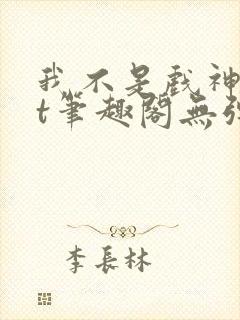 我不是戲神
t筆趣閣無弹
李長林